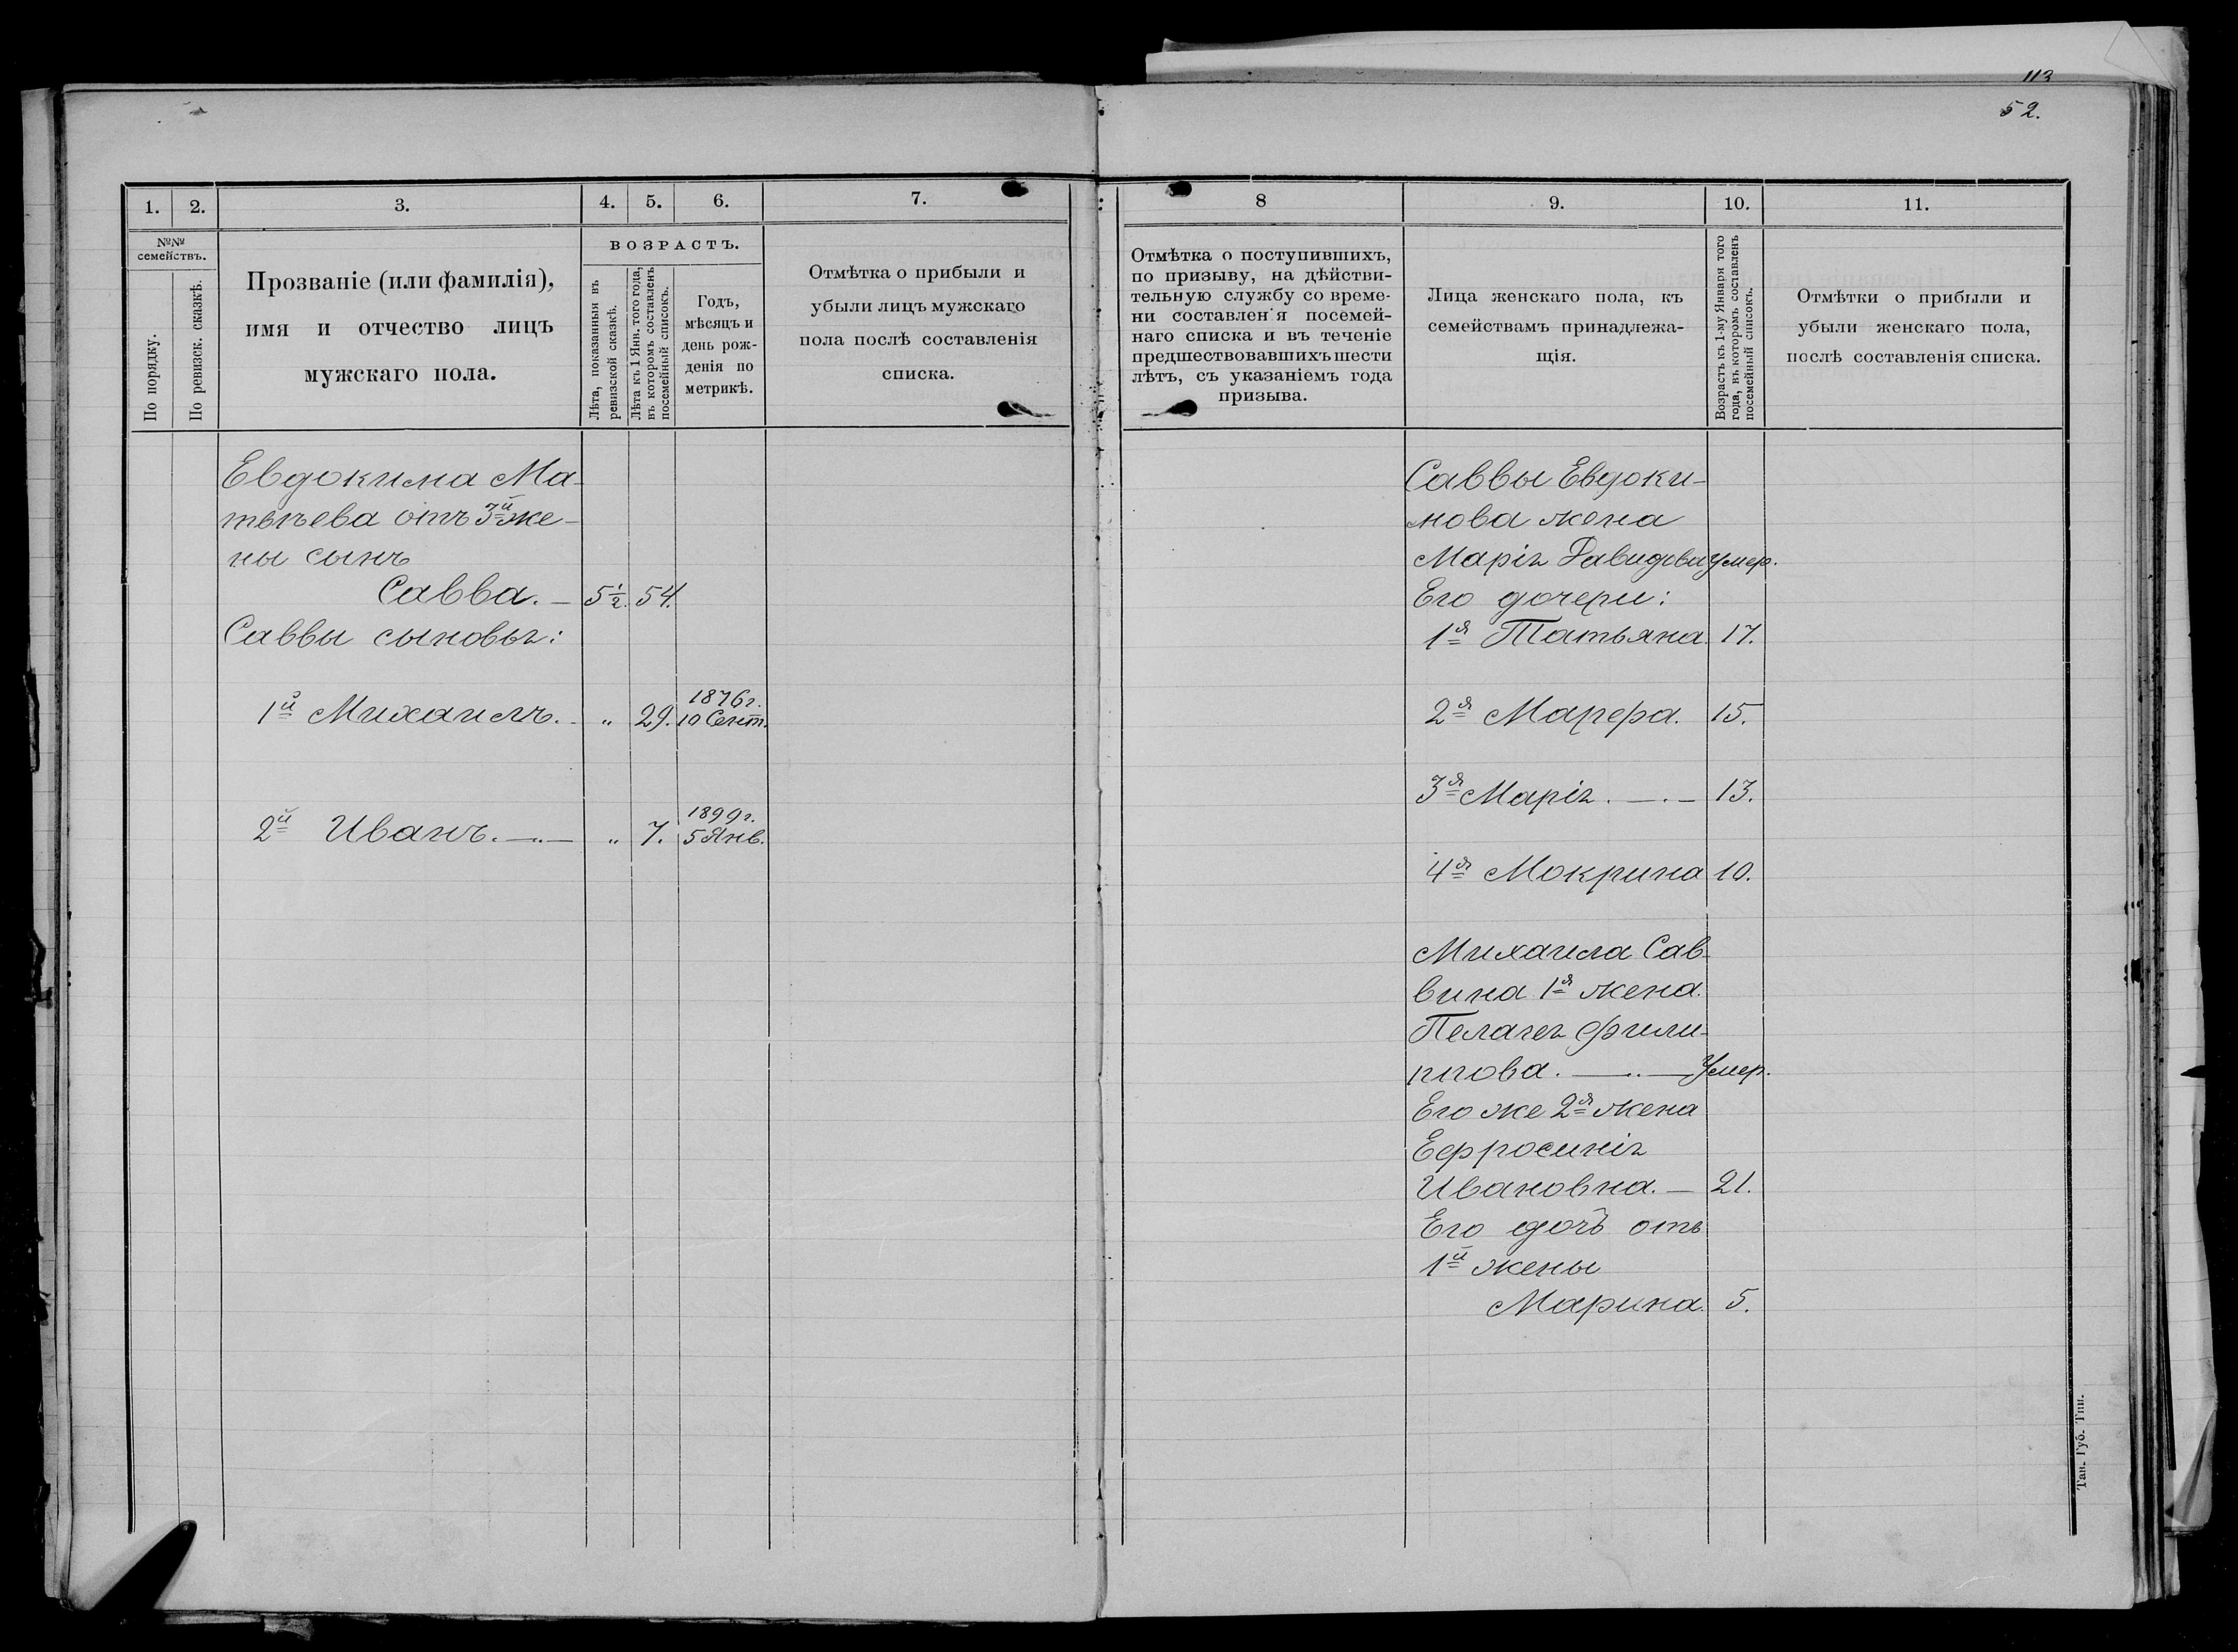 113
52.
1.
2.
3.
4.
5.
6.
7.
№№
семействъ.
По порядку.
По ревизск. сказкѣ.
Прозваніе (или фамилія),
имя и отчество лицъ
мужскаго пола.
ВОЗРАСТЪ.
Лѣта, показанныя въ
ревизской сказкѣ.
Лѣта къ 1 Янв. того года,
въ которомъ составленъ
посемейный списокъ.
Годъ,
мѣсяцъ и
день рож-
денія по
метрикѣ.
Отмѣтка о прибыли и
убыли лицъ мужскаго
пола послѣ составленія
списка.
Евдокима Ма-
твѣева отъ 3й же-
ны сынъ
Савва. — 5½. 54.
Саввы сыновья:
1й Михаилъ. - „ 29. 1876г.
10 Сент.
2й Иванъ. —„— „ 7. 1899г.
5 Янв.
8
9.
10.
11.
Отмѣтка о поступившихъ,
по призыву, на дѣйстви-
тельную службу со време-
ни составленія посемей-
наго списка и въ теченіе
предшествовавшихъ шести
лѣтъ, съ указаніемъ года
призыва.
Лица женскаго пола, къ
семействамъ принадлежа-
щія.
Возрастъ къ 1-му Января того
года, въ которомъ составленъ
посемейный списокъ.
Отмѣтки о прибыли и
убыли женскаго пола,
послѣ составленія списка.
Саввы Евдоки-
мова жена
Марія Давидова умер.
Его дочери:
1я Татьяна. 17.
2я Марѳра. 15.
3я Марія. —.— 13.
4я Мокрина 10.
Михаила Сав-
вина 1я жена.
Пелагея Фили-
ппова. —..— Умер.
Его же 2я жена
Ефросинія
Ивановна. — 21.
Его дочь отъ
1й жены
Марина. 5.
Тав. Губ. Тип.